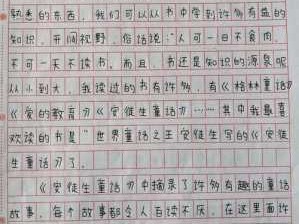 熟悉的东西，我们可以从书中学到许多有益的
知识，开阔视野，俗话说："人可一日不食肉，
不可一天不读书，而且，书还是知识的源泉呢
从小到大，我读过的书有许多，有《格林童话》
《爱的教育》《安徒生童话》……其中我最喜
欢读的书是"世界童话之王安徒生写的《安徒
生童话》了。
《安徒生童话》中摘录了许多有趣的童话
故事，每个故事都令人百读不厌，在这里面许